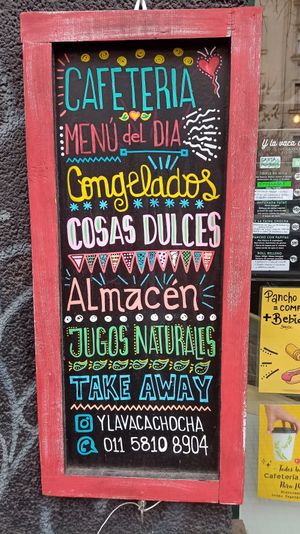 CAFETERIA
MENÚ del DIA
Congelados
COSAS DULCES
Almacén
JUGOS NATURALES
TAKE AWAY
YLAVACACHOCHA
011 5810 8904
Y la vaca
CARTA
Pancho
= COMP
+ Bebid
Cafetería